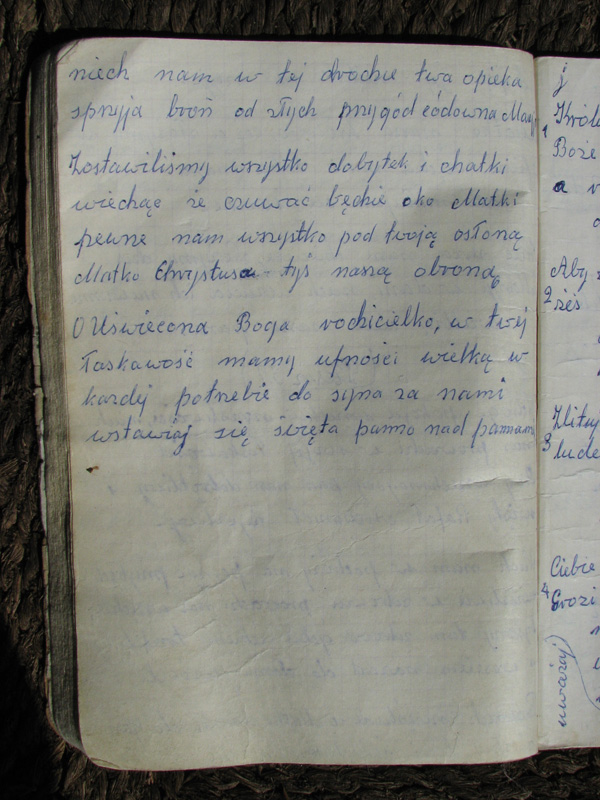 niech nam w tej drodze twa opieka
sprzyja broń od złych przygód códowna
Zostawiliśmy wszystko dobytek i chatki
wiedząc że czuwać będzie oko Matki
pewne nam wszystko pod twoją osłoną
Matko Chrystusa tyś naszą obroną
O Uświecona Boga rodzicielko, w twej
łaskawość mamy ufności wielką w
kazdej potrzebie do syna za nami
wstawiaj się święta panno nad pannami
j
1 Królo
Boże
a
Aby
2 żeś
Zlituj
3 lude
Ciebie
4 Grozi
uważaj